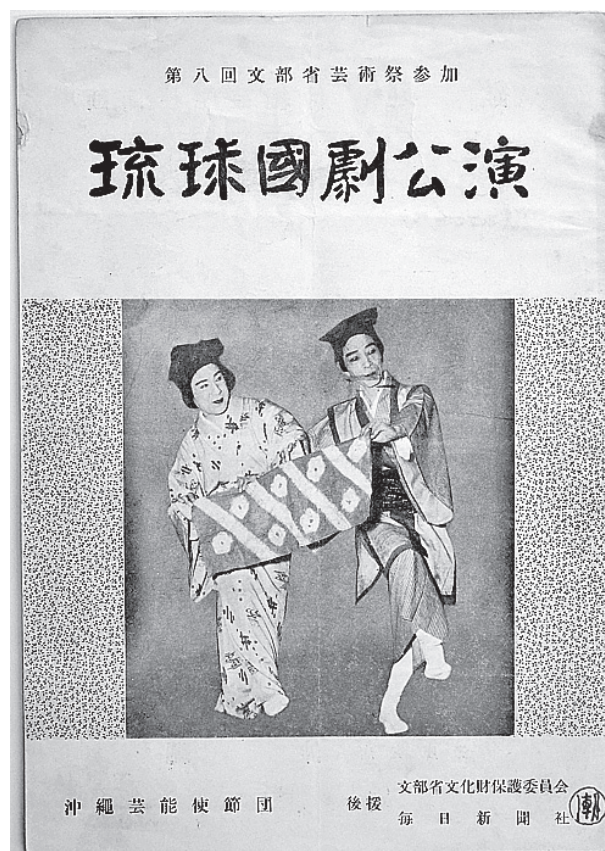 第八回文部省芸術祭参加
琉球國劇公演
沖縄芸能使節団
後援
文部省文化財保護委員会
毎日新聞社